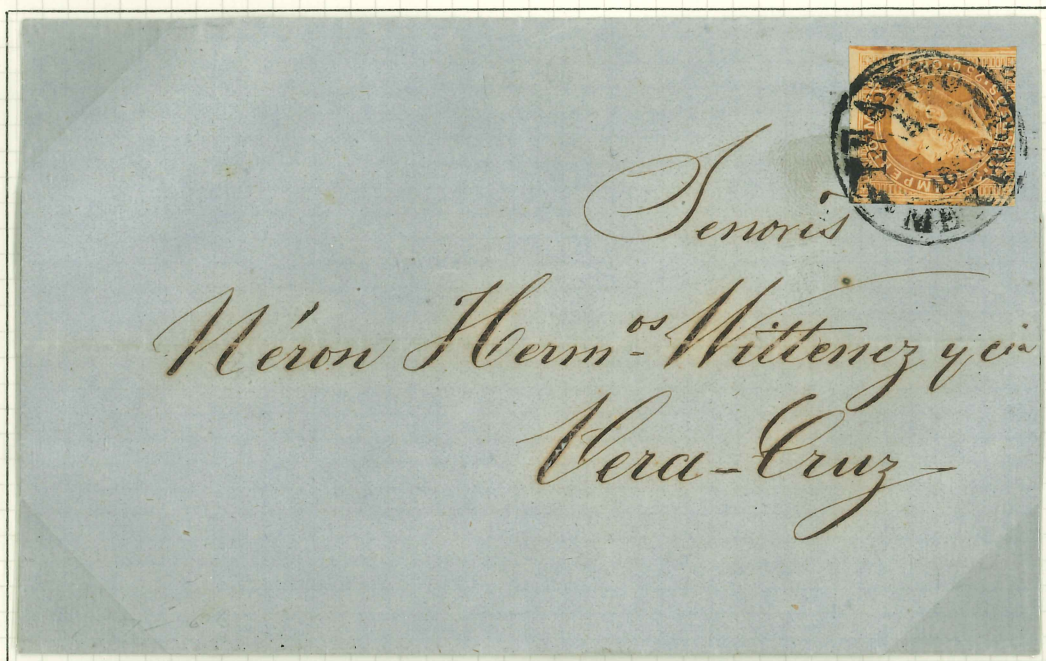 Senores
Néron Herm.os Wittenez y cia
Vera-Cruz